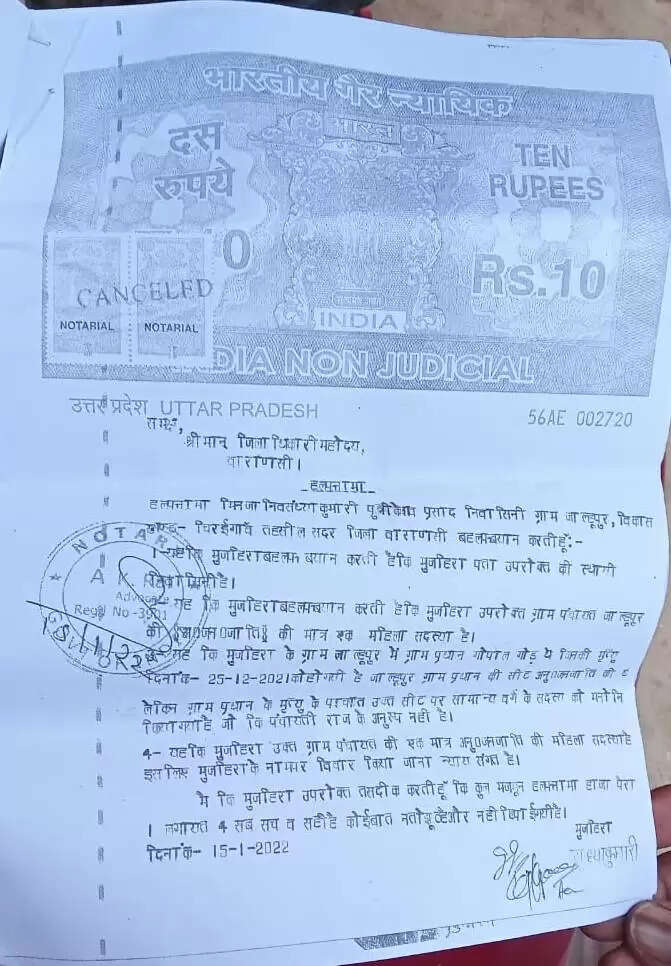 भारतीय गैर न्यायिक
भारत
दस
रुपये
TEN
RUPEES
0
Rs.10
CANCELED
NOTARIAL
NOTARIAL
सत्यमेव जयते
INDIA
DIA NON JUDICIAL
उत्तर प्रदेश UTTAR PRADESH
56AE 002720
समक्ष,
श्रीमान् जिलाधिकारी महोदय,
वाराणसी।
हल्फनामा
हल्फनामा मिनजानिब संध्या कुमारी पुत्री केशव प्रसाद निवासिनी ग्राम जाल्हूपुर, विकास
खण्ड- चिरईगाँव तहसील सदर जिला वाराणसी बहल्फ बयान करती हूँ:-
1-यह कि मुजहिरा बहल्फ बयान करती है कि मुजहिरा पता उपरोक्त की स्थायी
निवासिनी है।
2- यह कि मुजहिरा बहल्फ बयान करती है कि मुजहिरा उपरोक्त ग्राम पंचायत जाल्हूपुर
की अनु0जनजाति की मात्र एक महिला सदस्या है।
3- यह कि मुजहिरा के ग्राम जाल्हूपुर में ग्राम प्रधान गोपाल गोड़ थे जिनकी मृत्यु
दिनांक- 25-12-2021 को हो गती है जाल्हूपुर ग्राम प्रधान की सीट अनु0जनजाति की
लेकिन ग्राम प्रधान के मृत्यु के पश्चात उक्त सीट पर सामान्य वर्ग के सदस्य को मनोनि
किया गया है जो कि पंचायती राज के अनुरूप नहीं है।
4- यह कि मुजहिरा उक्त ग्राम पंचायत की एक मात्र अनु0जनजाति की महिला सदस्या है
इसलिए मुजहिरा के नाम पर विचार किया जाना न्याय संगत है।
मै कि मुजहिरा उपरोक्त तसदीक करती हूँ कि कुल मजमून हल्फनामा हाजा पैरा
1 लगायत 4 सब सच व सही है कोई बात न तो झूठ है और नही छिपाई गयी है।
दिनांक- 15-1-2022
मुजहिरा
संध्या कुमारी
NOTAR
A K
Advocate
Regd No-3901